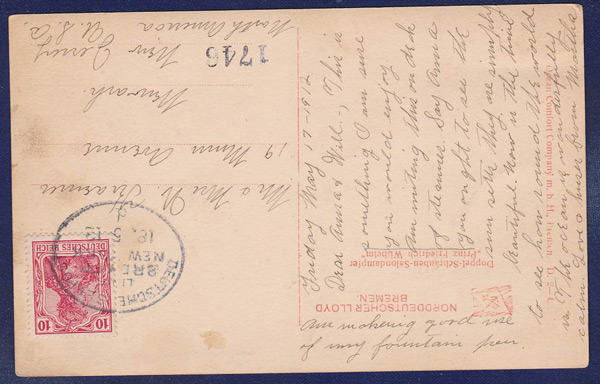 Friday May 17-1912
Dear Anna & Will-, This is
something I am sure
you would enjoy
Am writing this on deck
of steamer. Say Anna
you ought to see the
sun sets they are simply
beautiful. Now is the time
to see how round the world
is. The ocean is wonderfully
calm Love & kisses from Martha
Am makeing good use
of my fountain pen.
NORDDEUTSCHER LLOYD
BREMEN.
Doppel-Schrauben-Salondampfer
"Prinz Friedrich Wilhelm"
Comfort Company m. b. H.
1746
Mr & Mrs W.
19 Avenue
Newark
New Jersey
North America
U. S. A.
DEUTSCHE
NEW
18. 5. 12
DEUTSCHES REICH
10
10